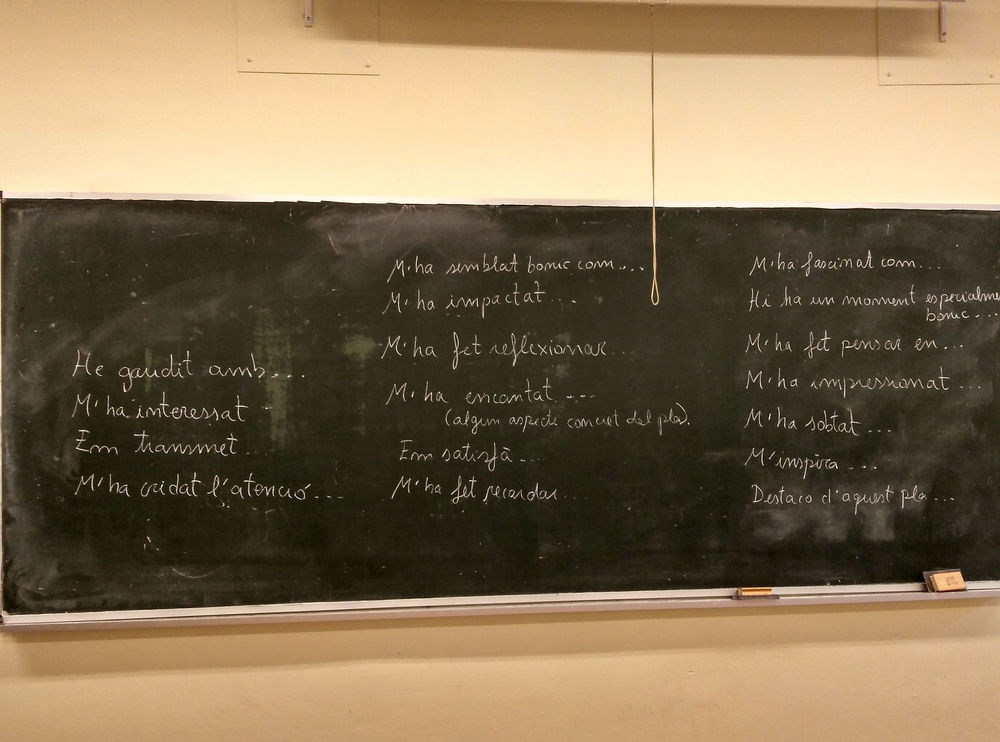 He gaudit amb...
M'ha interessat ..
Em transmet ...
M'ha cridat l'atenció ...
M'ha semblat bonic com....
M'ha impactat ...
M'ha fet reflexionar ...
M'ha encantat ....
(algun aspecte concret del pla).
Em satisfà ....
M'ha fet recordar ...
M'ha fascinat com...
Hi ha un moment especialme
bonic....
M'ha fet pensar en ...
M'ha impressionat ...
M'ha sobtat ...
M'inspira ...
Destaco d'aquest pla ...